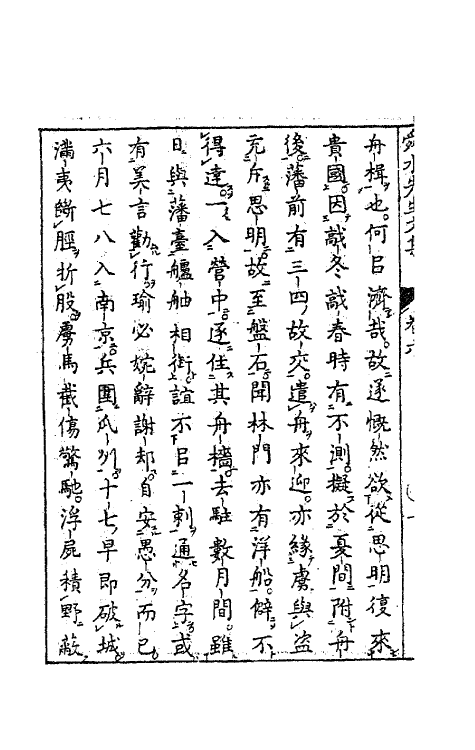 舟楫也何㠯濟哉故遂慨然欲從思明復來
貴國因敲冬敲春時有不測擬於夏間附舟
後藩前有三四故交遣舟來迎亦緣虜與盜
充斥思明故至盤石聞林門亦有洋船僻不
得達一入營中遂住其舟檣去駐數月間雖
日與藩臺艫舳相銜誼不㠯一刺通名字或
有美言勸行瑜必婉辭謝却自安愚分而已
六月七八入南京兵圍瓜州十七早即破城
滿夷斷脛折股虜馬截傷驚馳浮屍積野蔽